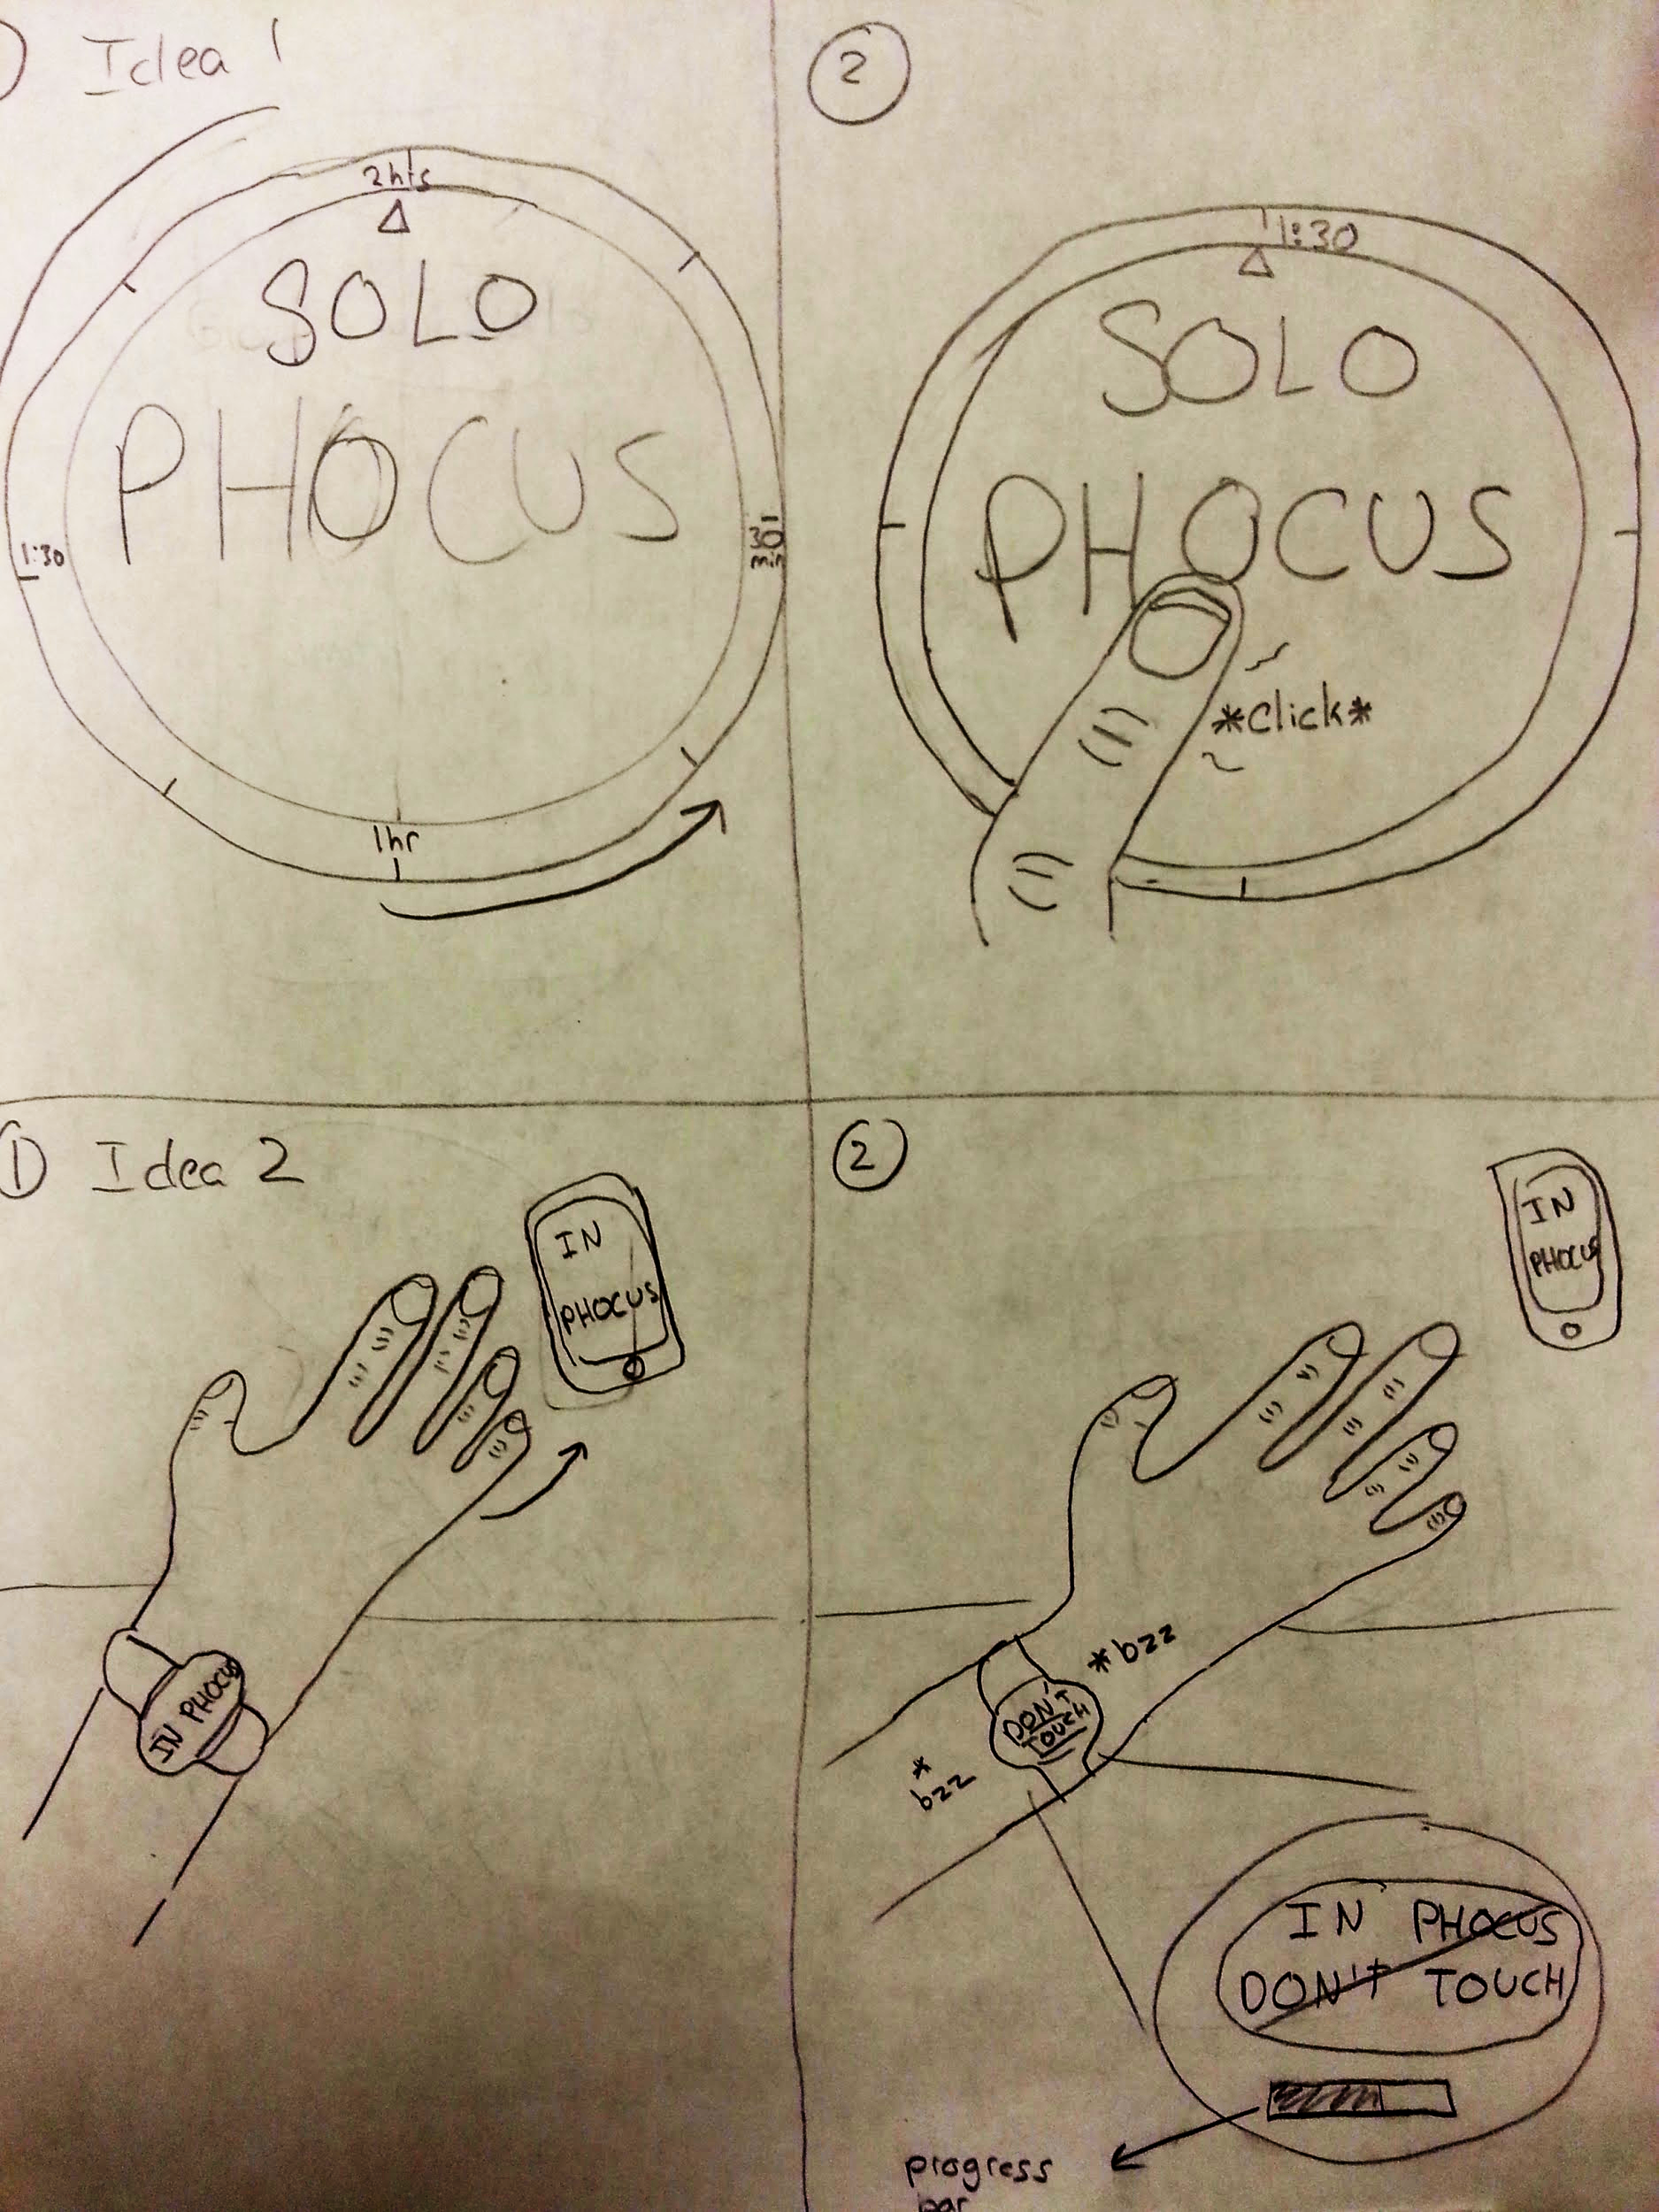 1 Idea 1
2hrs
SOLO
PHOCUS
1:30
30
min
1hr
2
1:30
SOLO
PHOCUS
*click*
1 Idea 2
IN
PHOCUS
IN PHOCUS
2
IN
PHOCUS
*bzz
DON'T
TOUCH
*
bzz
IN PHOCUS
DON'T TOUCH
progress
bar